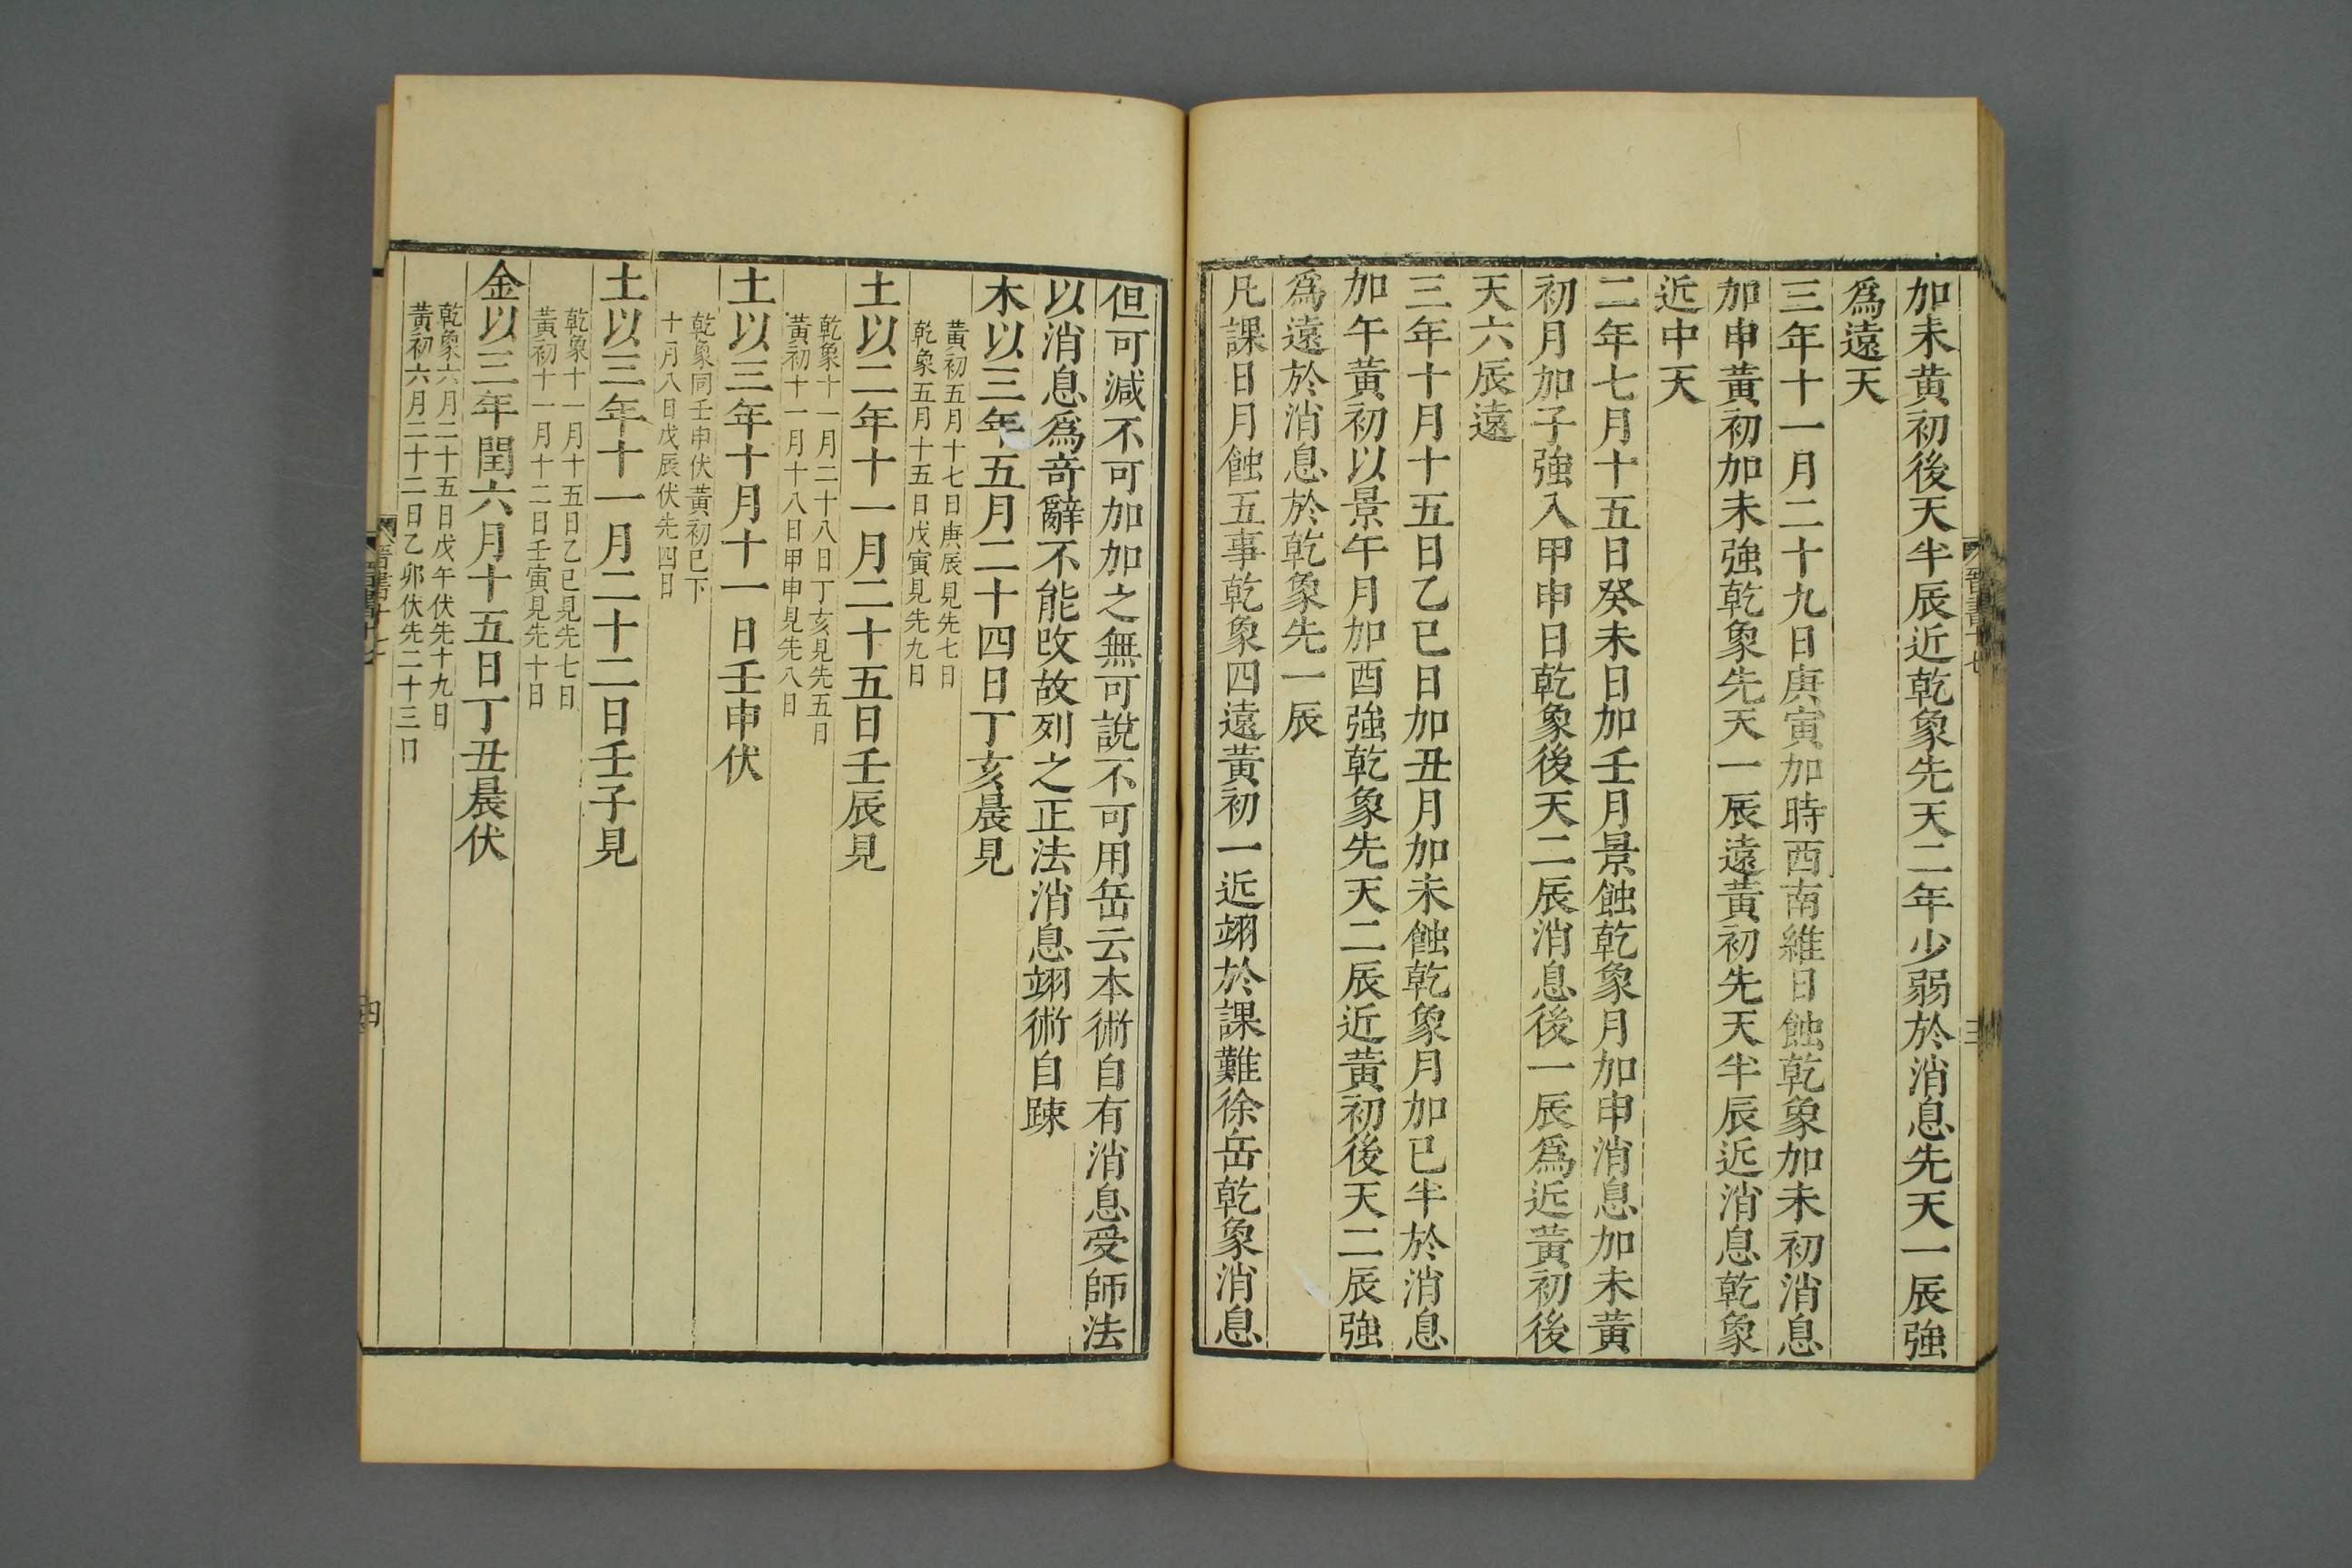 加未黃初後天半辰近乾象先天二年少弱於消息先天一辰強
爲遠天
三年十一月二十九日庚寅加時西南維日蝕乾象加未初消息
加申黃初加未強乾象先天一辰遠黃初先天半辰近消息乾象
近中天
二年七月十五日癸未日加壬月景蝕乾象月加申消息加未黃
初月加子強入甲申日乾象後天二辰消息後一辰爲近黃初後
天六辰遠
三年十月十五日乙巳日加丑月加未蝕乾象月加巳半於消息
加午黃初以景午月加酉強乾象先天二辰近黃初後天二辰強
爲遠於消息於乾象先一辰
凡課日月蝕五事乾象四遠黃初一近翊於課難徐岳乾象消息
但可減不可加加之無可說不可用岳云本術自有消息受師法
以消息爲奇辭不能改故列之正法消息翊術自踈
木以三年五月二十四日丁亥晨見
黃初五月十七日庚辰見先七日
乾象五月十五日戊寅見先九日
土以二年十一月二十五日壬辰見
乾象十一月二十八日丁亥見先五日
黃初十一月十八日甲申見先八日
土以三年十月十一日壬申伏
乾象同壬申伏黃初巳下
十月八日戊辰伏先四日
土以三年十一月二十二日壬子見
乾象十一月十五日乙巳見先七日
黃初十一月十二日壬寅見先十日
金以三年閏六月十五日丁丑晨伏
乾象六月二十五日戊午伏先十九日
黃初六月二十二日乙卯伏先二十三日
晉書十七
四